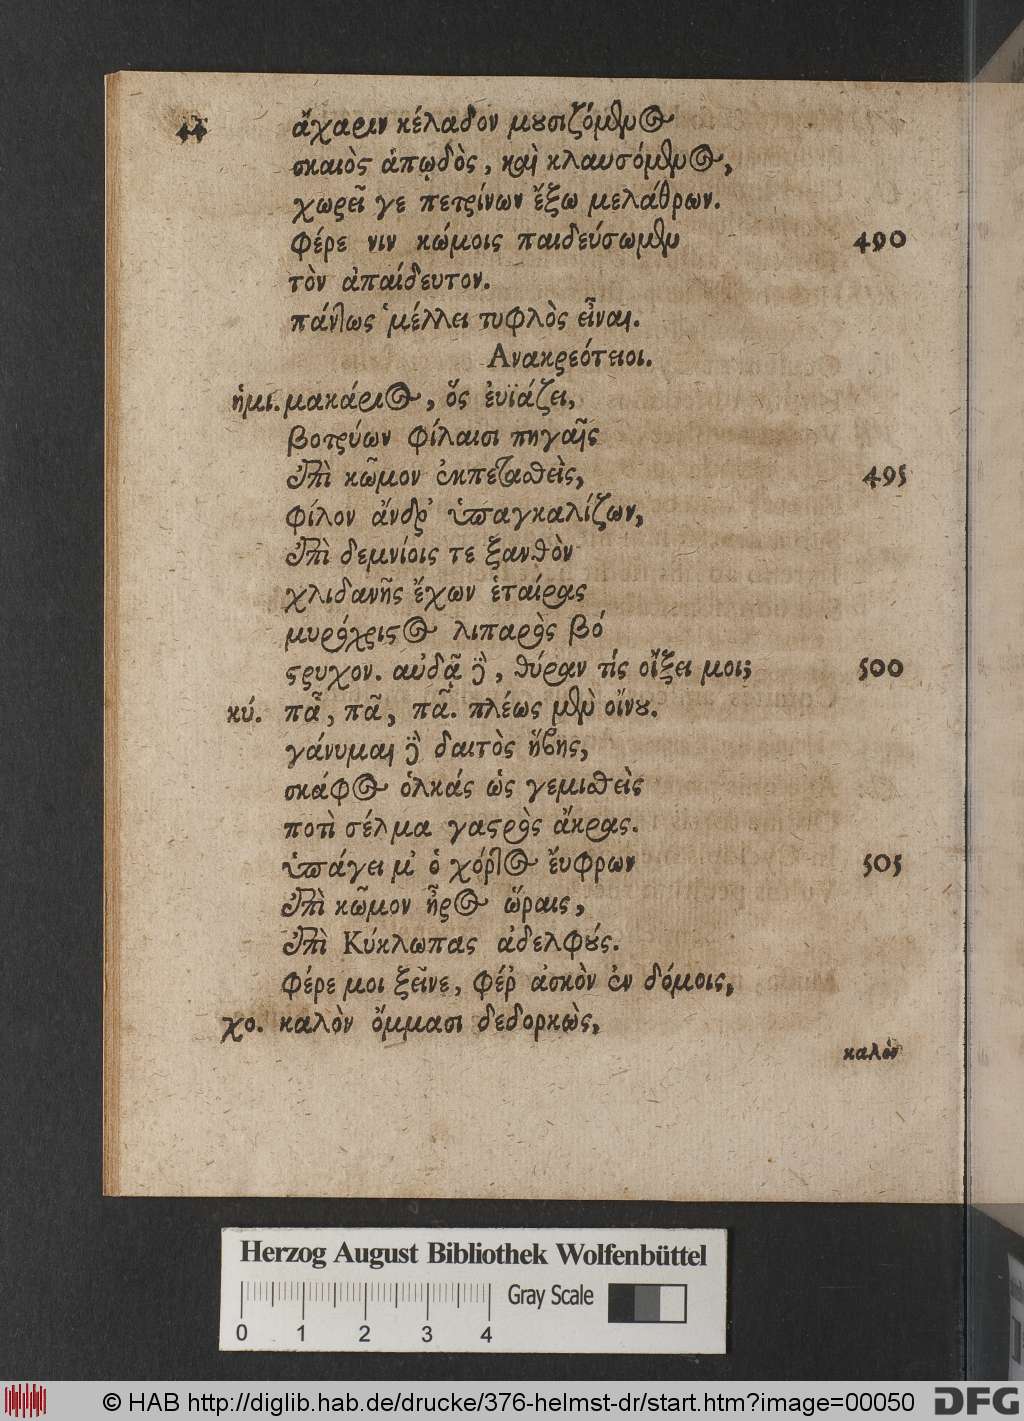 44
ἄχαριν κέλαδον μουσιζόμενος
σκαιὸς ἀπῳδὸς, καὶ κλαυσόμενος,
χωρεῖ γε πετρίνων ἔξω μελάθρων.
φέρε νιν κώμοις παιδεύσωμεν 490
τὸν ἀπαίδευτον.
πάντως μέλλει τυφλὸς εἶναι.
Ανακρεότειοι.
ἡμι. μακάριος, ὅς ἐυϊάζει,
βοτρύων φίλαισι πηγαῖς
ἐπὶ κῶμον ἐκπετασθεὶς, 495
φίλον ἄνδρ' ὑπαγκαλίζων,
ἐπὶ δεμνίοις τε ξανθὸν
χλιδανῆς ἔχων ἑταίρας
μυρόχριστος λιπαρὸς βό
στρυχον. αὐδᾷ δὲ, θύραν τίς οἴξει μοι; 500
κύ. πᾶ, πᾶ, πᾶ. πλέως μὲν οἴνου.
γάνυμαι δὲ δαιτὸς ἥβης,
σκάφος ὁλκάς ὡς γεμισθεὶς
ποτὶ σέλμα γαστρὸς ἄκρας.
ὑπάγει μ' ὁ χόρτος ἔυφρων 505
ἐπὶ κῶμον ἦρος ὥραις,
ἐπὶ Κύκλωπας ἀδελφούς.
φέρε μοι ξεῖνε, φέρ' ἀσκὸν ἐν δόμοις,
χο. καλὸν ὄμμασι δεδορκὼς,
καλὸν
Herzog August Bibliothek Wolfenbüttel
Gray Scale
0 1 2 3 4
© HAB http://diglib.hab.de/drucke/376-helmst-dr/start.htm?image=00050
DFG